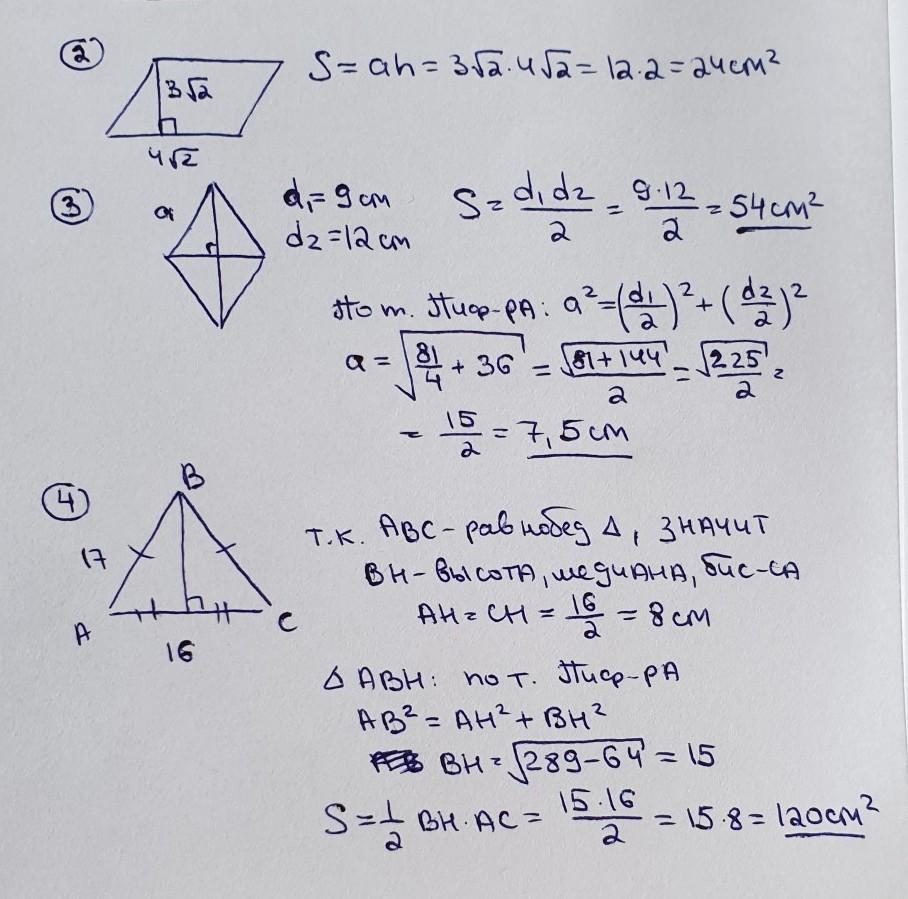 ② 3√2 S = ah = 3√2·4√2 = 12·2 = 24 см²
4√2
③ a d₁ = 9 см S = d₁d₂/2 = 9·12/2 = 54 см²
d₂ = 12 см
По т. Пиф-рА: a² = (d₁/2)² + (d₂/2)²
a = √(81/4 + 36) = √(81+144)/2 = √225/2 =
= 15/2 = 7,5 см
④ B
Т.К. ABC - равнобед Δ, ЗНАЧИТ
17
BH - ВЫСОТА, МЕДИАНА, БИС-СА
AH = CH = 16/2 = 8 см
A C
16
Δ ABH: по т. Пиф-рА
AB² = AH² + BH²
BH = √(289-64) = 15
S = 1/2 BH·AC = 15·16/2 = 15·8 = 120 см²